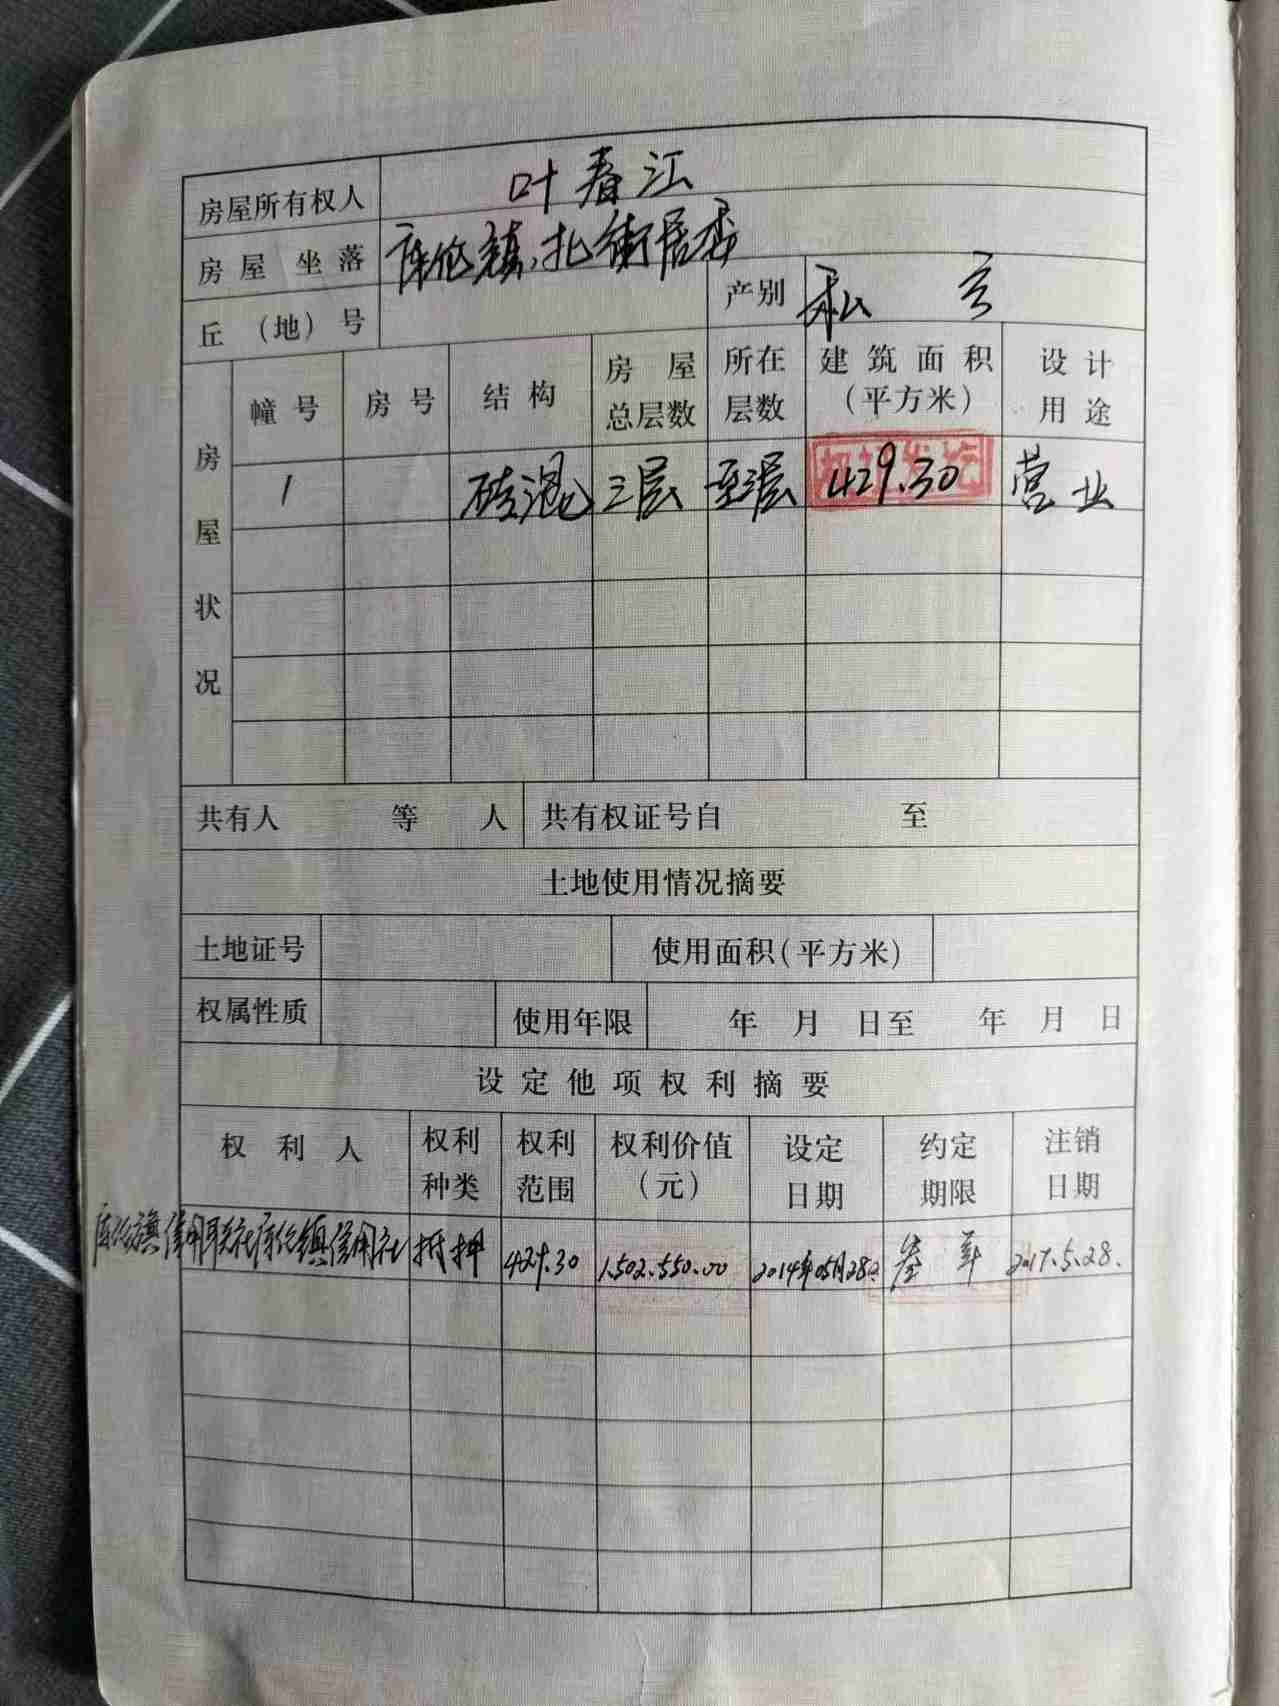 房屋所有权人 叶春江
房屋坐落 库伦镇、北街居委
丘（地）号 产别 私
房屋状况 幢号 房号 结构 房屋总层数 所在层数 建筑面积（平方米） 设计用途
1 砖混 三层 至三层 429.30 营业
共有人 等 人 共有权证号自 至
土地使用情况摘要
土地证号 使用面积(平方米)
权属性质 使用年限 年 月 日至 年 月 日
设定他项权利摘要
权利人 权利种类 权利范围 权利价值（元） 设定日期 约定期限 注销日期
库伦旗信用联社库伦镇信用社 抵押 429.30 1.502.550.00 2014年05月28日 叁年 2017.5.28.